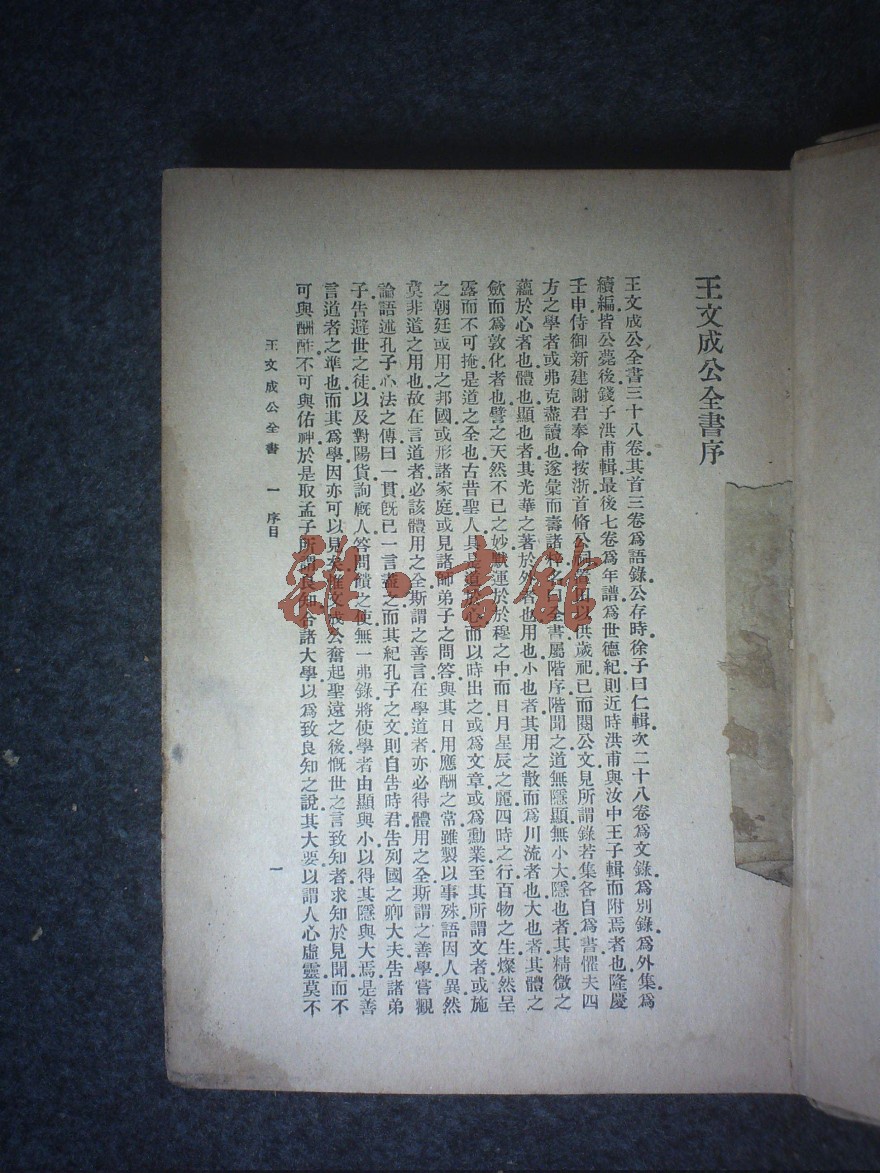 王文成公全書序
王文成公全書三十八卷其首三卷爲語錄公存時徐子曰仁輯次二十八卷爲文錄爲別錄爲外集爲
續編皆公薨後錢子洪甫輯最後七卷爲年譜爲世德紀則近時洪甫與汝中王子輯而附焉者也隆慶
壬申侍御新建謝君奉命按浙首脩公祠置田以供歲祀已而閱公文見所謂錄若集各自爲書懼夫四
方之學者或弗克盡讀也遂彙而壽諸梓名曰全書屬階序階聞之道無隱顯無小大隱也者其精微之
蘊於心者也體也顯也者其光華之著於外者也用也小也者其用之散而爲川流者也大也者其體之
斂而爲敦化者也譬之天然不已之妙默運於於穆之中而日月星辰之麗四時之行百物之生燦然呈
露而不可掩是道之全也古昔聖人具是道於心而以時出之或爲文章或爲勳業至其所謂文者或施
之朝廷或用之邦國或形諸家庭或見諸師弟子之問答與其日用應酬之常雖製以事殊語因人異然
莫非道之用也故在言道者必該體用之全斯謂之善言在學道者亦必得體用之全斯謂之善學嘗觀
論語述孔子心法之傳曰一貫旣已一言盡之而其紀孔子之文則自告時君告列國之卿大夫告諸弟
子告避世之徒以及對陽貨詢廐人答問饋之使無一弗錄將使學者由顯與小以得其隱與大焉是善
言道者之準也而其爲學因亦可以見矣惟文成公奮起聖遠之後慨世之言致知者求知於見聞而不
可與酬酢不可與佑神於是取孟子所謂良知合諸大學以爲致良知之說其大要以謂人心虛靈莫不
王文成公全書 一 序目
一
雜·書館